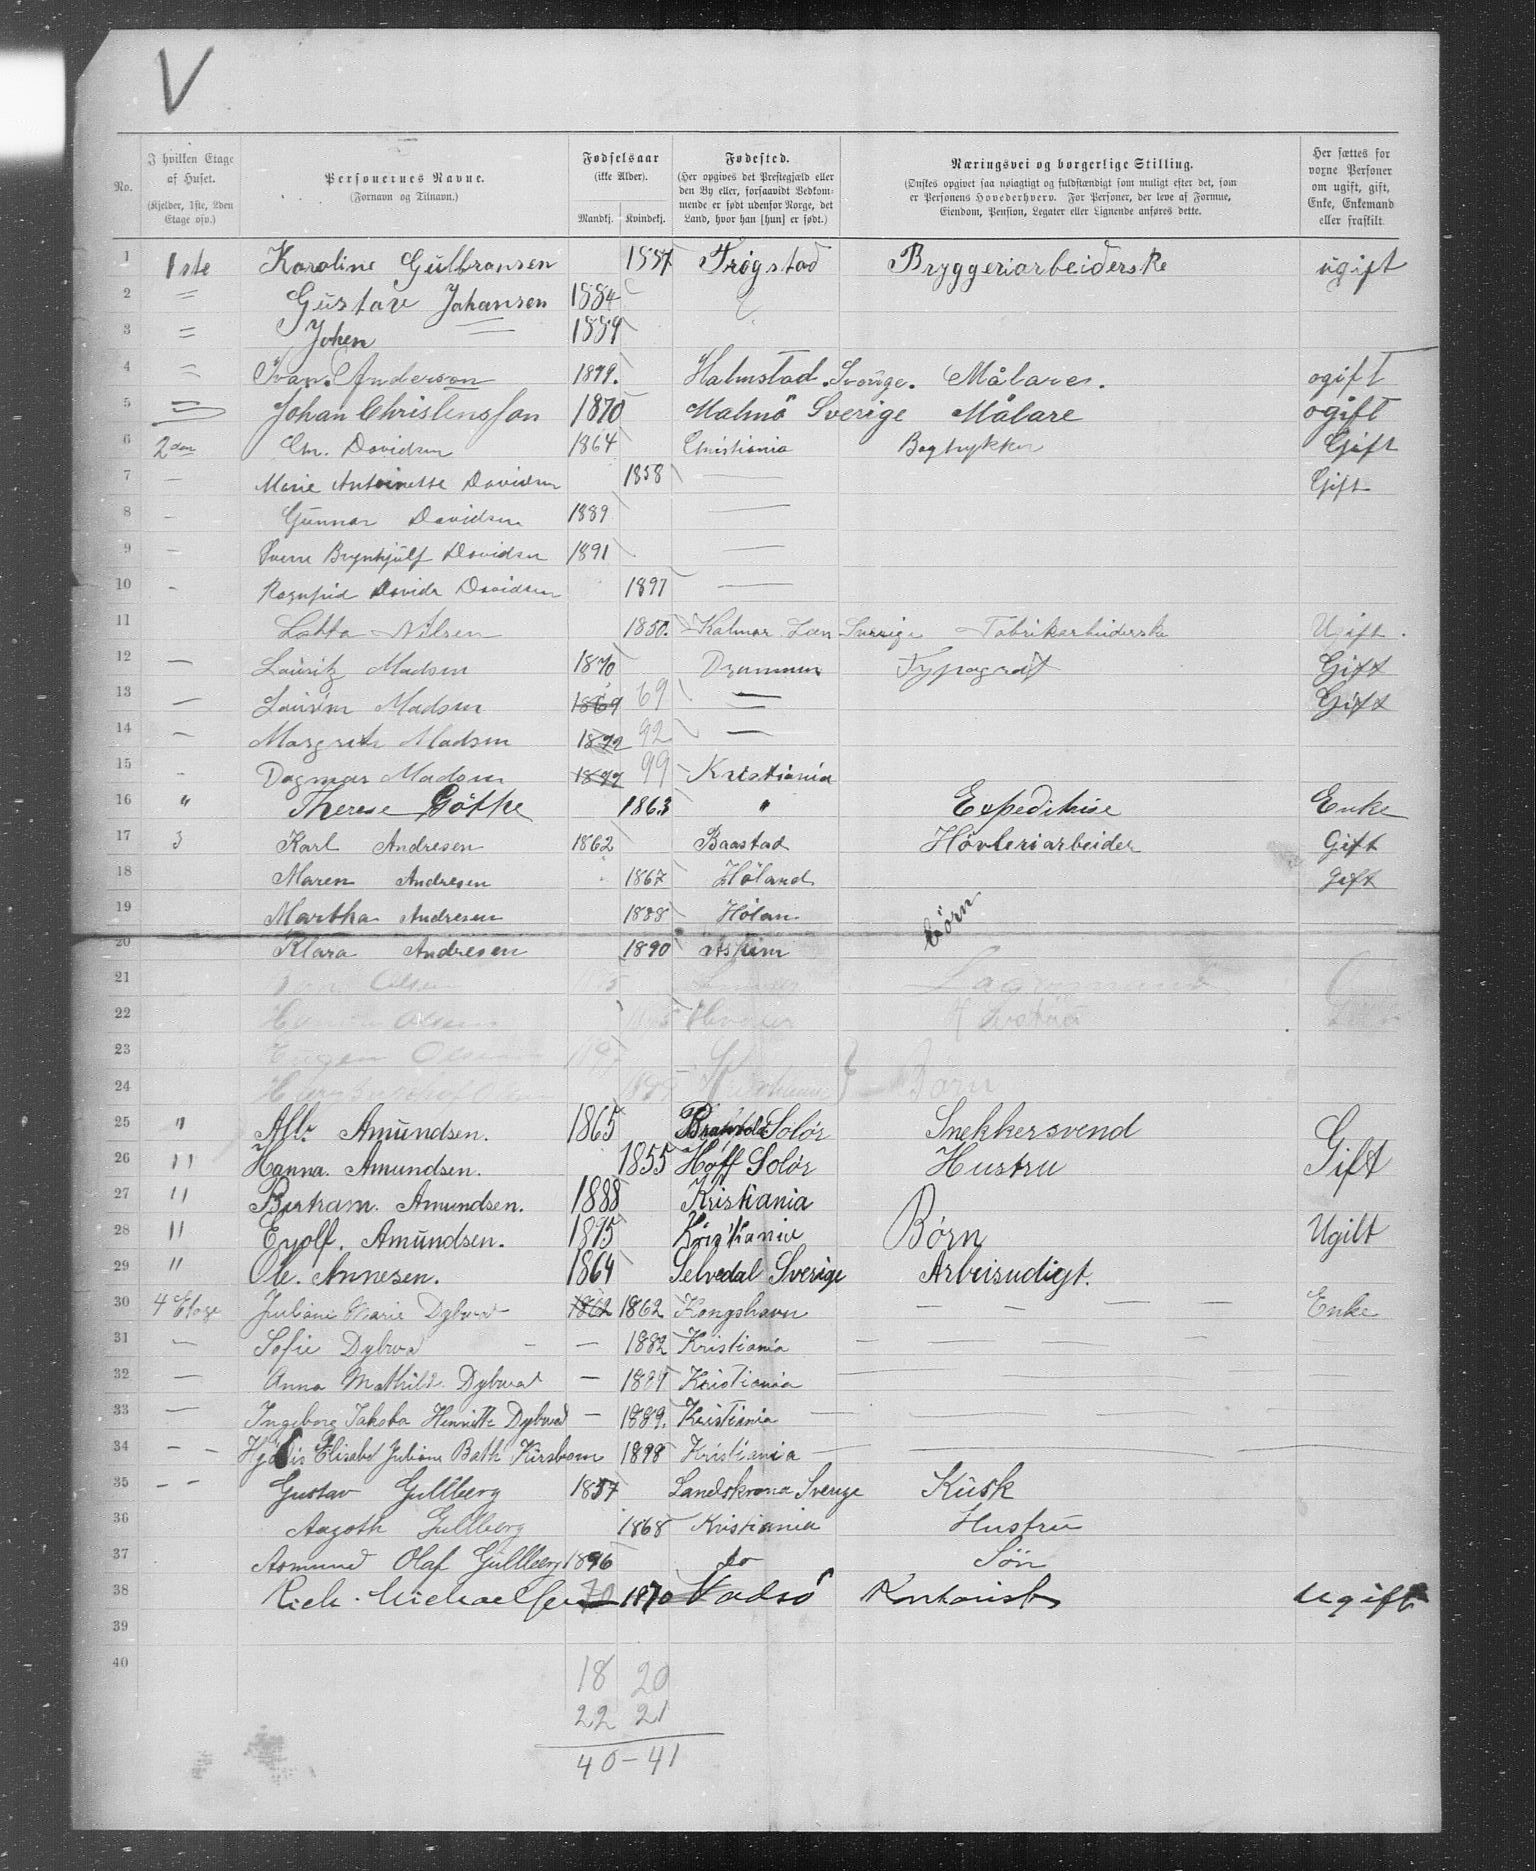 V
No.
I hvilken Etage af Huset. (Kjelder, 1ste, 2den Etage osv.)
Personernes Navne. (Fornavn og Tilnavn.)
Fødselsaar (ikke Alder). Mandkj. Kvindekj.
Fødested. (Her opgives det Prestegjæld eller den By eller, forsaavidt Vedkommende er født udenfor Norge, det Land, hvor han [hun] er født.)
Næringsvei og borgerlige Stilling. (Ønskes opgivet saa nøiagtigt og fuldstændigt som muligt efter det, som er Personens Hovederhverv. For Personer, der leve af Formue, Eiendom, Pension, Legater eller Lignende anføres dette.
Her sættes for voxne Personer om ugift, gift, Enke, Enkemand eller fraskilt.
1 1ste Karoline Gulbransen 1857 Trøgstad Bryggeriarbeiderske ugift
2 " Gustav Johansen 1884
3 " Johen — 1889
4 " Ivan Anderson 1879. Halmstad. Sverige. Målare. ogift
5 " Johan Christensson 1870 Malmö Sverige Målare ogift
6 2den Chr. Davidsen 1864 Christiania Bogtrykker Gift
7 — Marie Antoinette Davidsen 1858 — Gift
8 — Gunnar Davidsen 1889 —
9 — Sverre Brynhjulf Davidsen 1891 —
10 — Ragnfrid Davida Davidsen 1897 —
11 Lotta Nilsen 1850. Kalmar Læn Sverige Fabrikarbeiderske Ugift.
12 — Lauritz Madsen 1870 Drammen Typograf Gift
13 — Madsen 1869 69 — Gift
14 — Margrete Madsen 1892 92 —
15 — Dagmar Madsen 1899 99 Kristiania
16 " Therese 1863 " Expeditrise Enke
17 3 Karl Andresen 1862 Baastad Høvleriarbeider Gift
18 Maren Andresen 1867 Høland gift
19 Martha Andresen 1888 Hølan børn
20 Klara Andresen 1890 Askim
21 Olsen
22 Olsen
23 Eugen Olsen
24 Børn
25 " Alfr. Amundsen. 1865 Solør Snekkersvend
26 " Hanna. Amundsen. 1855 Hoff Solør Hustru Gift
27 " Bertram. Amundsen. 1888 Kristiania
28 " Eyolf. Amundsen. 1895 Kristiania Børn Ugift
29 " Ole. Annesen. 1864 Sverige
30 4 Etage Juliane Marie Dybwad 1862 1862 Kongshavn — — — — Enke
31 — Sofie Dybwad — — 1882 Kristiania — — — —
32 — Anna Mathilde Dybwad — 1887 Kristiania —
33 — Ingeborg Jakoba Henriette Dybwad — 1889. Kristiania —
34 — — Hjørdis Elisabet Juliane Bath Kirsebom 1898 Kristiania —
35 — — Gustav Gullberg 1857 Landskrona Sverige Kusk
36 Aagoth Gullberg 1868 Kristiania Hustru
37 Asmund Olaf Gullberg 1896 do Søn
38 Michaelsen 70 1870 Vadsö Kontorist ugift
39
40
18 20
22 21
40 - 41